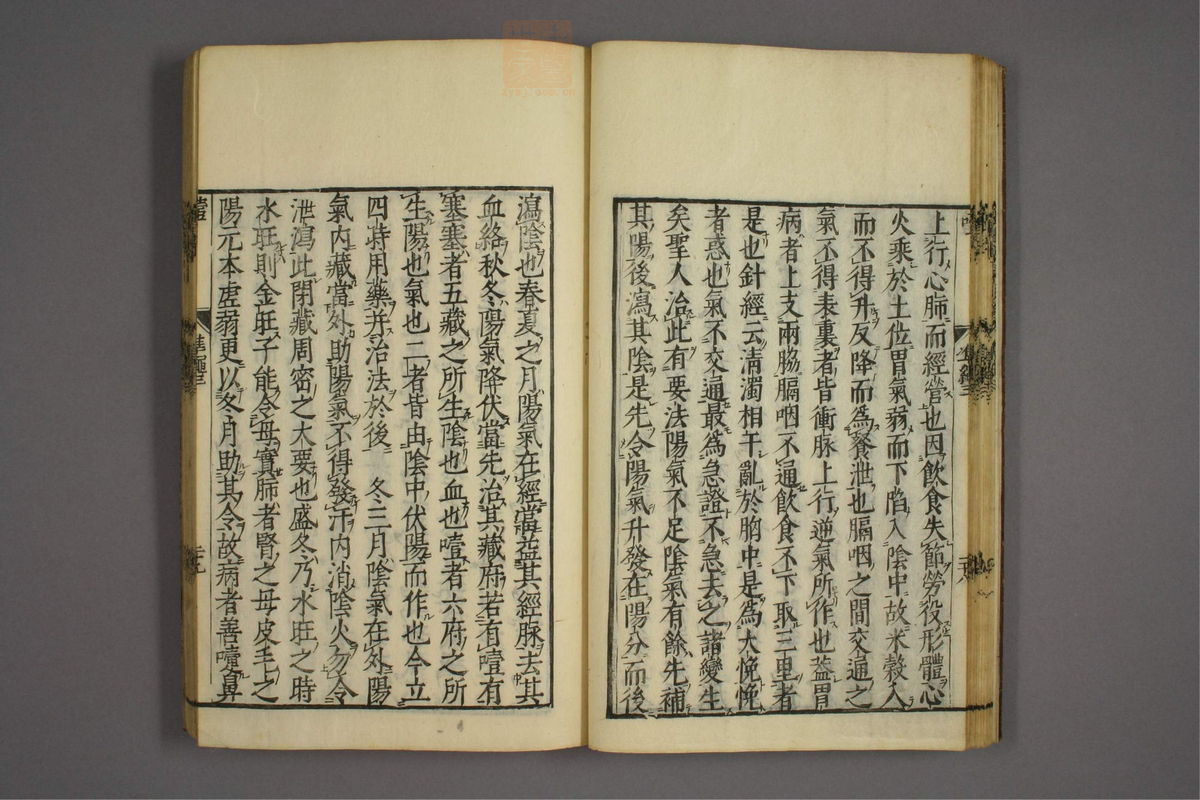 上行心肺而經營也因飲食失節勞役形體心
火乘於土位胃氣弱而下陷入陰中故米穀入
而不得升反降而為飧泄也膈咽之間交通之
氣不得表裏者皆衝脉上行逆氣所作也蓋胃
病者上支兩脇膈咽不通飲食不下取三里者
是也針經云清濁相干亂於胸中是為大悗悗
者惑也氣不交通最為急證不急去之諸變生
矣聖人治此有要法陽氣不足陰氣有餘先補
其陽後瀉其陰是先令陽氣升發在陽分而後
瀉陰也春夏之月陽氣在經當益其經脉去其
血絡秋冬陽氣降伏當先治其藏府若有噎有
塞塞者五藏之所生陰也血也噎者六府之所
生陽也氣也二者皆由陰中伏陽而作也今立
四時用藥并治法於後 冬三月陰氣在外陽
氣內藏當外助陽氣不得發汗內消陰火勿令
泄瀉此閉藏周密之大要也盛冬乃水旺之時
水旺則金旺子能令母實肺者腎之母皮毛之
陽元本虛弱更以冬月助其令故病者善嚏鼻